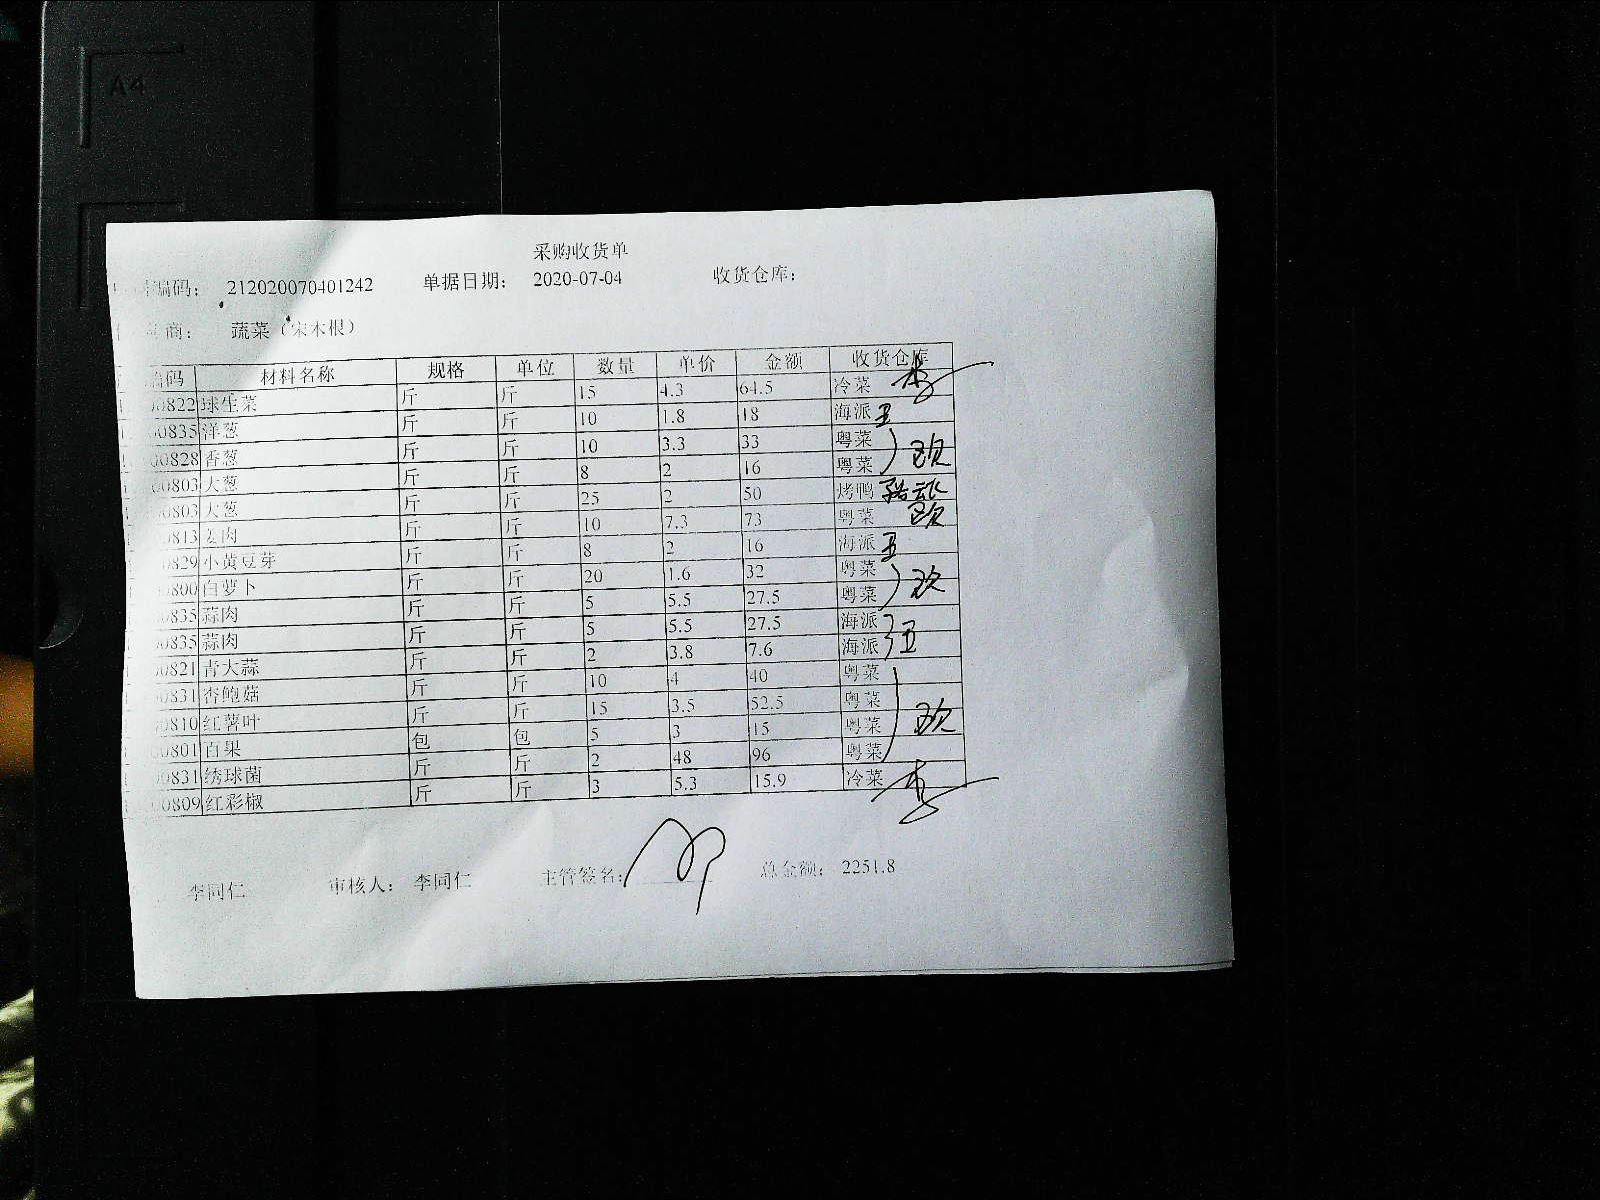 A4
采购收货单
编码： 212020070401242 单据日期： 2020-07-04 收货仓库：
商： 蔬菜（宋木根）
编码 材料名称 规格 单位 数量 单价 金额 收货仓库
00822 球生菜 斤 斤 15 4.3 64.5 冷菜 李
00835 洋葱 斤 斤 10 1.8 18 海派 王
00828 香葱 斤 斤 10 3.3 33 粤菜
00803 大葱 斤 斤 8 2 16 粤菜 欧
00803 大葱 斤 斤 25 2 50 烤鸭
00813 姜肉 斤 斤 10 7.3 73 粤菜 欧
00829 小黄豆芽 斤 斤 8 2 16 海派 王
00800 白萝卜 斤 斤 20 1.6 32 粤菜
00835 蒜肉 斤 斤 5 5.5 27.5 粤菜 欧
00835 蒜肉 斤 斤 5 5.5 27.5 海派
00821 青大蒜 斤 斤 2 3.8 7.6 海派 王
00831 杏鲍菇 斤 斤 10 4 40 粤菜
00810 红薯叶 斤 斤 15 3.5 52.5 粤菜
00801 百果 包 包 5 3 15 粤菜 欧
00831 绣球菌 斤 斤 2 48 96 粤菜
00809 红彩椒 斤 斤 3 5.3 15.9 冷菜 李
李同仁 审核人： 李同仁 主管签名： 总金额： 2251.8